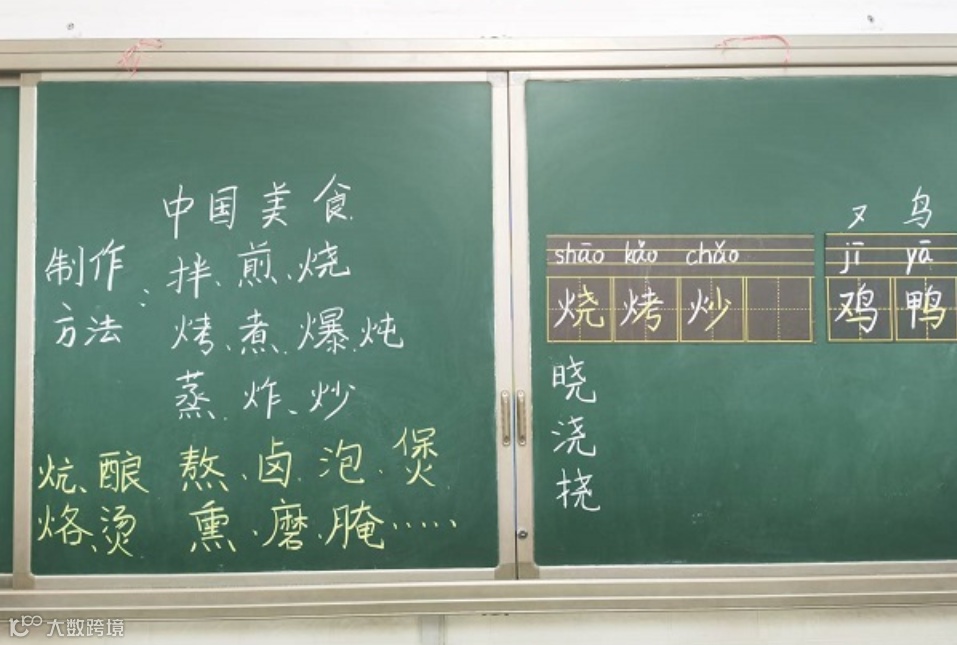 中国美食
制作方法：
拌、煎、烧
烤、煮、爆、炖
蒸、炸、炒
炕、酿 熬、卤、泡、煲
烙、烫 熏、磨、腌……
又 鸟
shāo kǎo chǎo
jī yā
烧烤炒
鸡鸭
晓
浇
挠
大数跨境